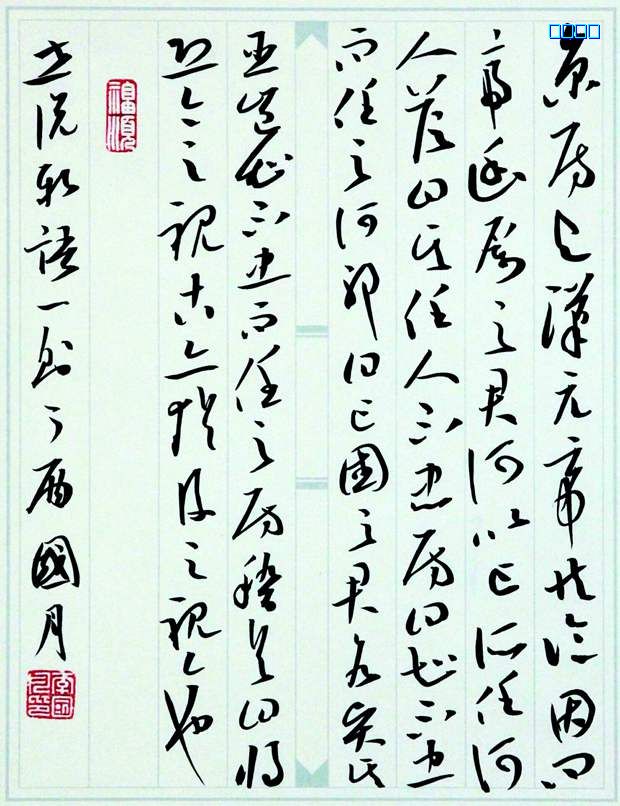 京房与漢元帝共論因问
帝幽厲之君何以亡所任何
人答曰其任人不忠房曰知不忠
而任之何邪曰亡國之君各賢其
臣豈知不忠而任之房稽首曰將
恐今之視古亦猶後之視今也
世說新語一則丁酉國月